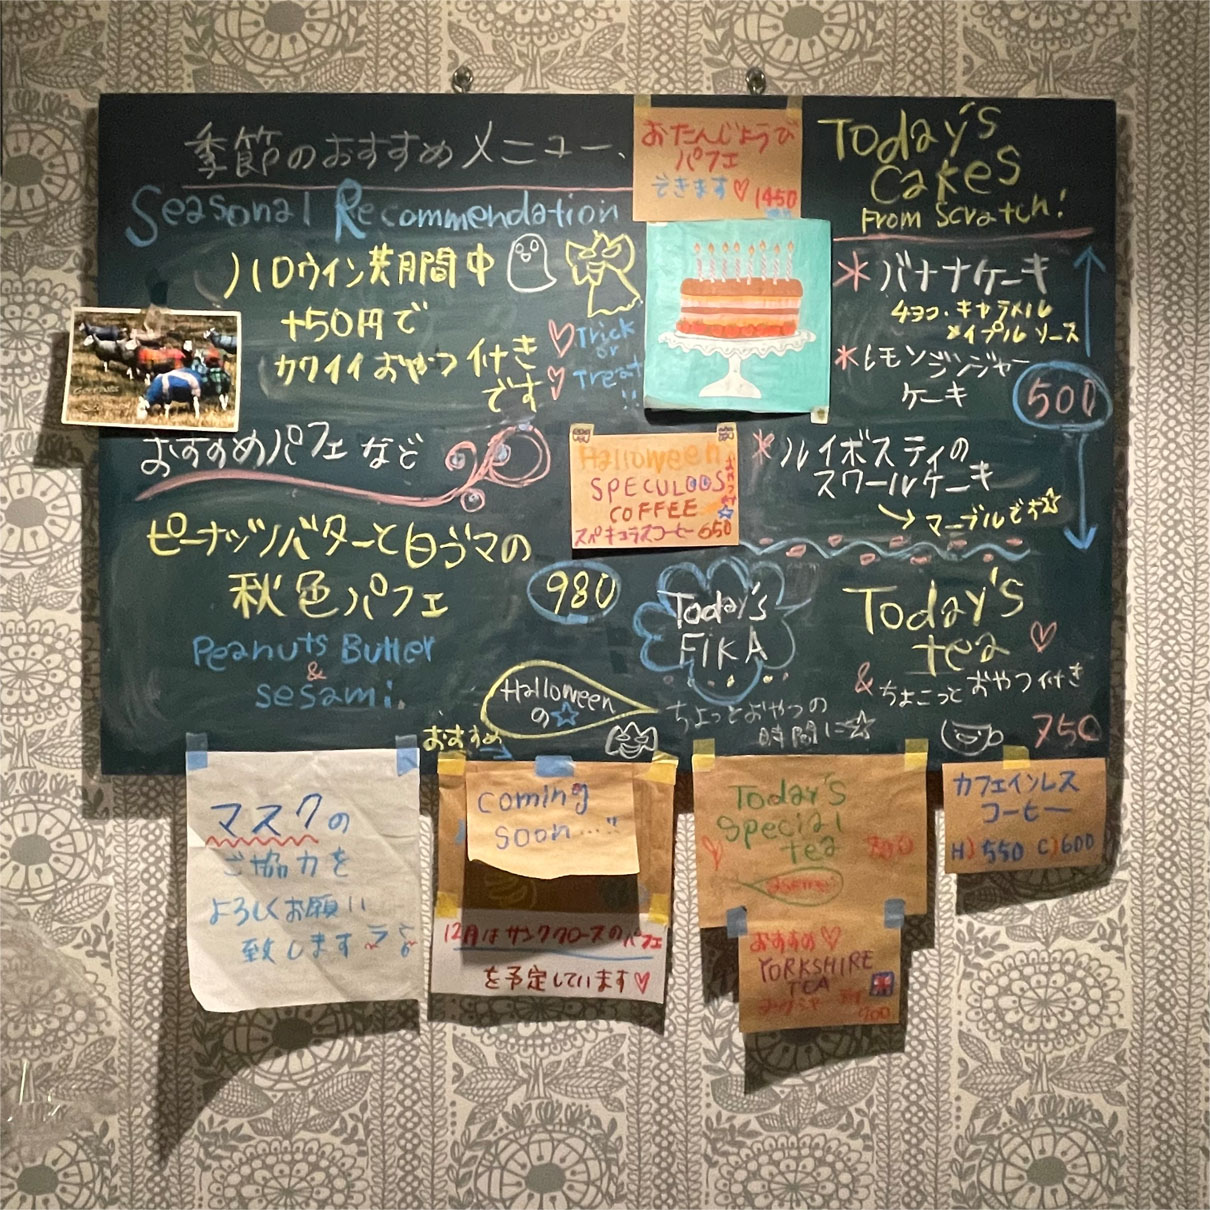 季節のおすすめメニュー、
Seasonal Recommendation
ハロウィン期間中
+50円で
カワイイおやつ付き
です
Trick
or
Treat
!!
おすすめパフェなど
ピーナッツバターと白ゴマの
秋色パフェ
980
Peanuts Butter
&
sesami.
おたんじょうび
パフェ
できます♡
1450
Halloween
SPECULOOS
COFFEE
スペキュラスコーヒー 650
Today's
Cakes
From Scratch!
*バナナケーキ
チョコ・キャラメル
メイプルソース
*レモンジンジャー
ケーキ
500
*ルイボスティの
スワールケーキ
→マーブルです☆
Today's
FIKA
ちょっとおやつの
時間に☆
Today's
tea ♡
&ちょこっとおやつ付き
750
Halloween
の☆
おすすめ
マスクの
ご協力を
よろしくお願い
致します
coming
soon...!!
12月はサンタクロースのパフェ
を予定しています♡
Today's
special
tea
おすすめ♡
YORKSHIRE
TEA
700
カフェインレス
コーヒー
H)550 C)600